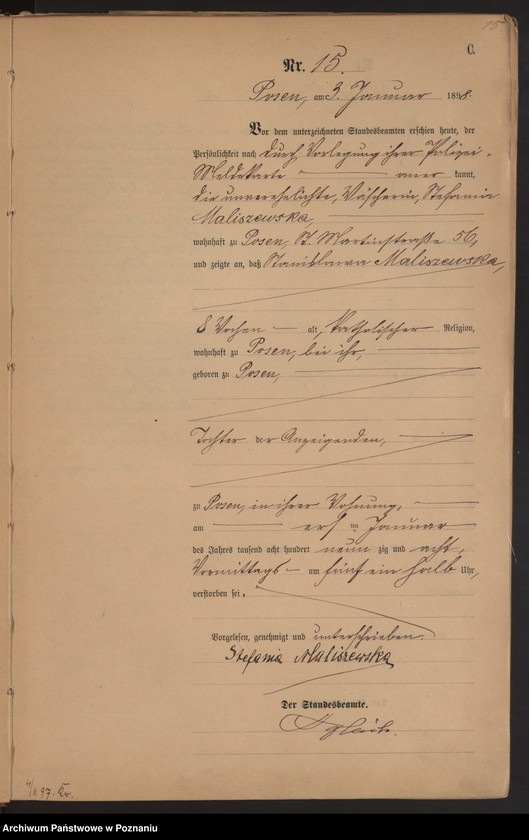 155
C.
Nr. 15.
Posen, am 3. Januar 1898.
Vor dem unterzeichneten Standesbeamten erschien heute, der
Persönlichkeit nach durch Vorlegung ihrer Polizei-
Meldekarte anerkannt,
die unverehelichte, Wäscherin, Stefania
Maliszewska,
wohnhaft zu Posen, St. Martinstraße 56,
und zeigte an, daß Stanislawa Maliszewska,
8 Wochen alt, katholischer Religion,
wohnhaft zu Posen, bei ihr,
geboren zu Posen,
Tochter der Anzeigenden,
zu Posen, in ihrer Wohnung,
am ersten Januar
des Jahres tausend acht hundert neunzig und acht,
Vormittags um fünf ein halb Uhr,
verstorben sei.
Vorgelesen, genehmigt und unterschrieben.
Stefania Maliszewska
Der Standesbeamte.
97.
Archiwum Państwowe w Poznaniu